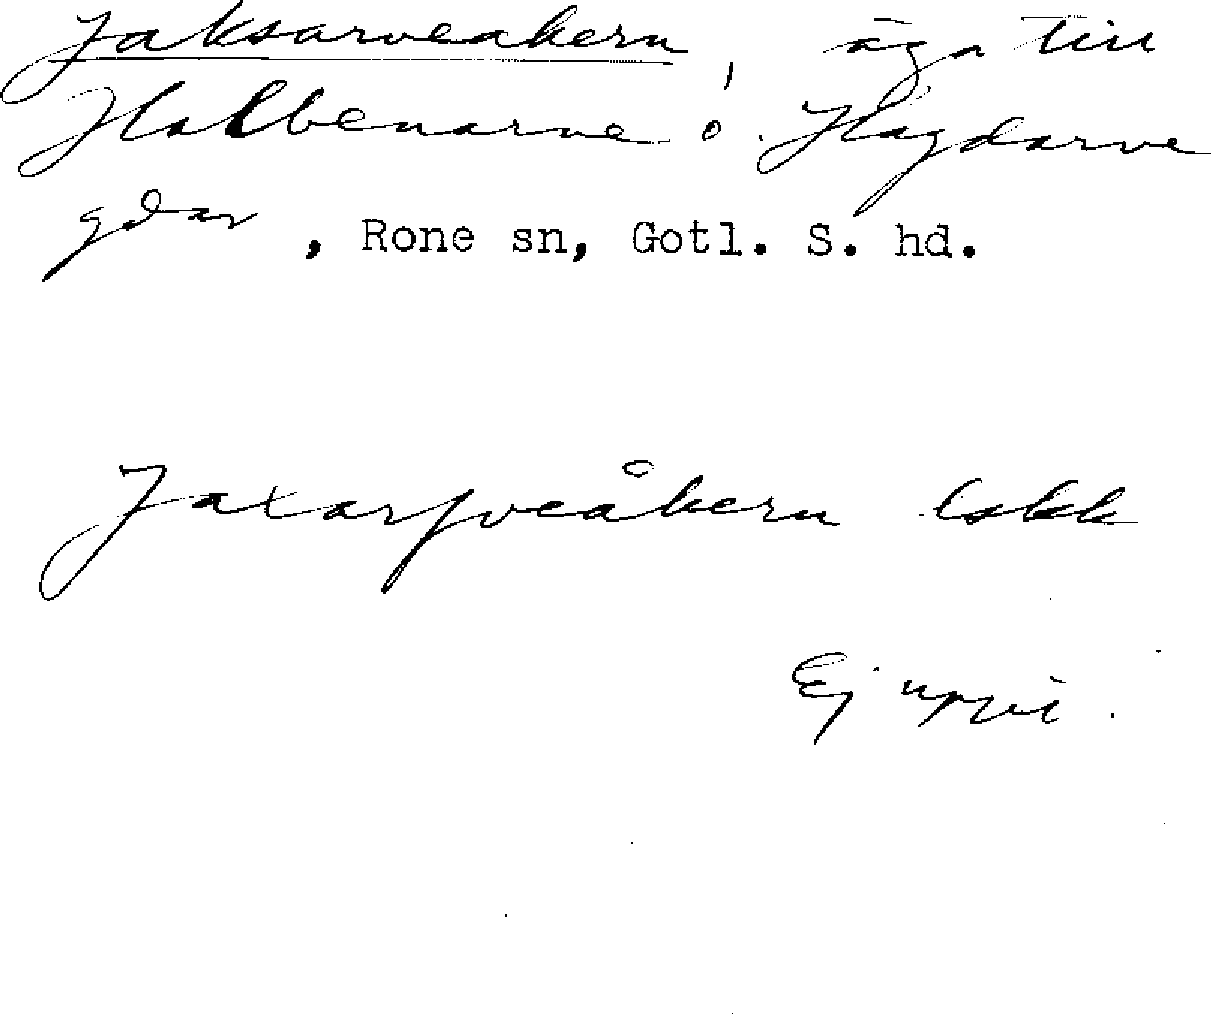 Jaksarveakern, äga till
Hallbenarve o. Hägdarve
gdar, Rone sn, Gotl. S. hd.
Jaxarfveåkern
Ej uppt.